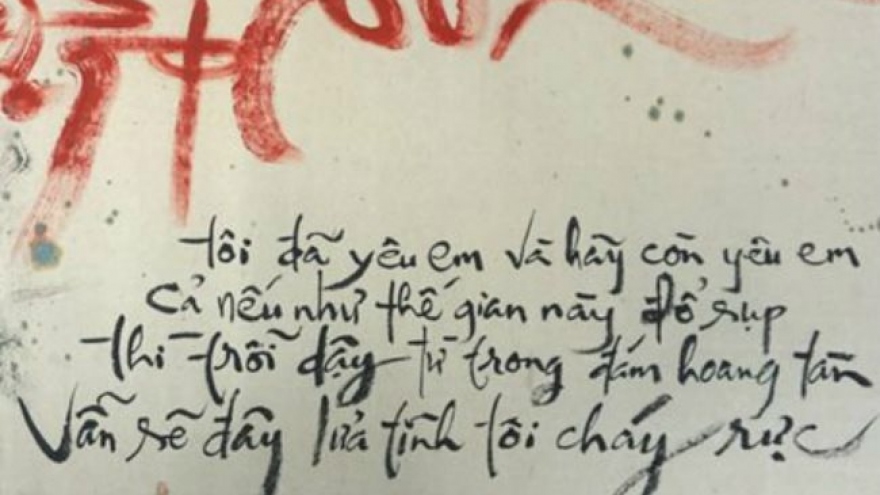 tôi đã yêu em và hãy còn yêu em
Cả nếu như thế gian này đổ sụp
thì trỗi dậy từ trong đám hoang tàn
Vẫn sẽ đây lửa tình tôi cháy rực